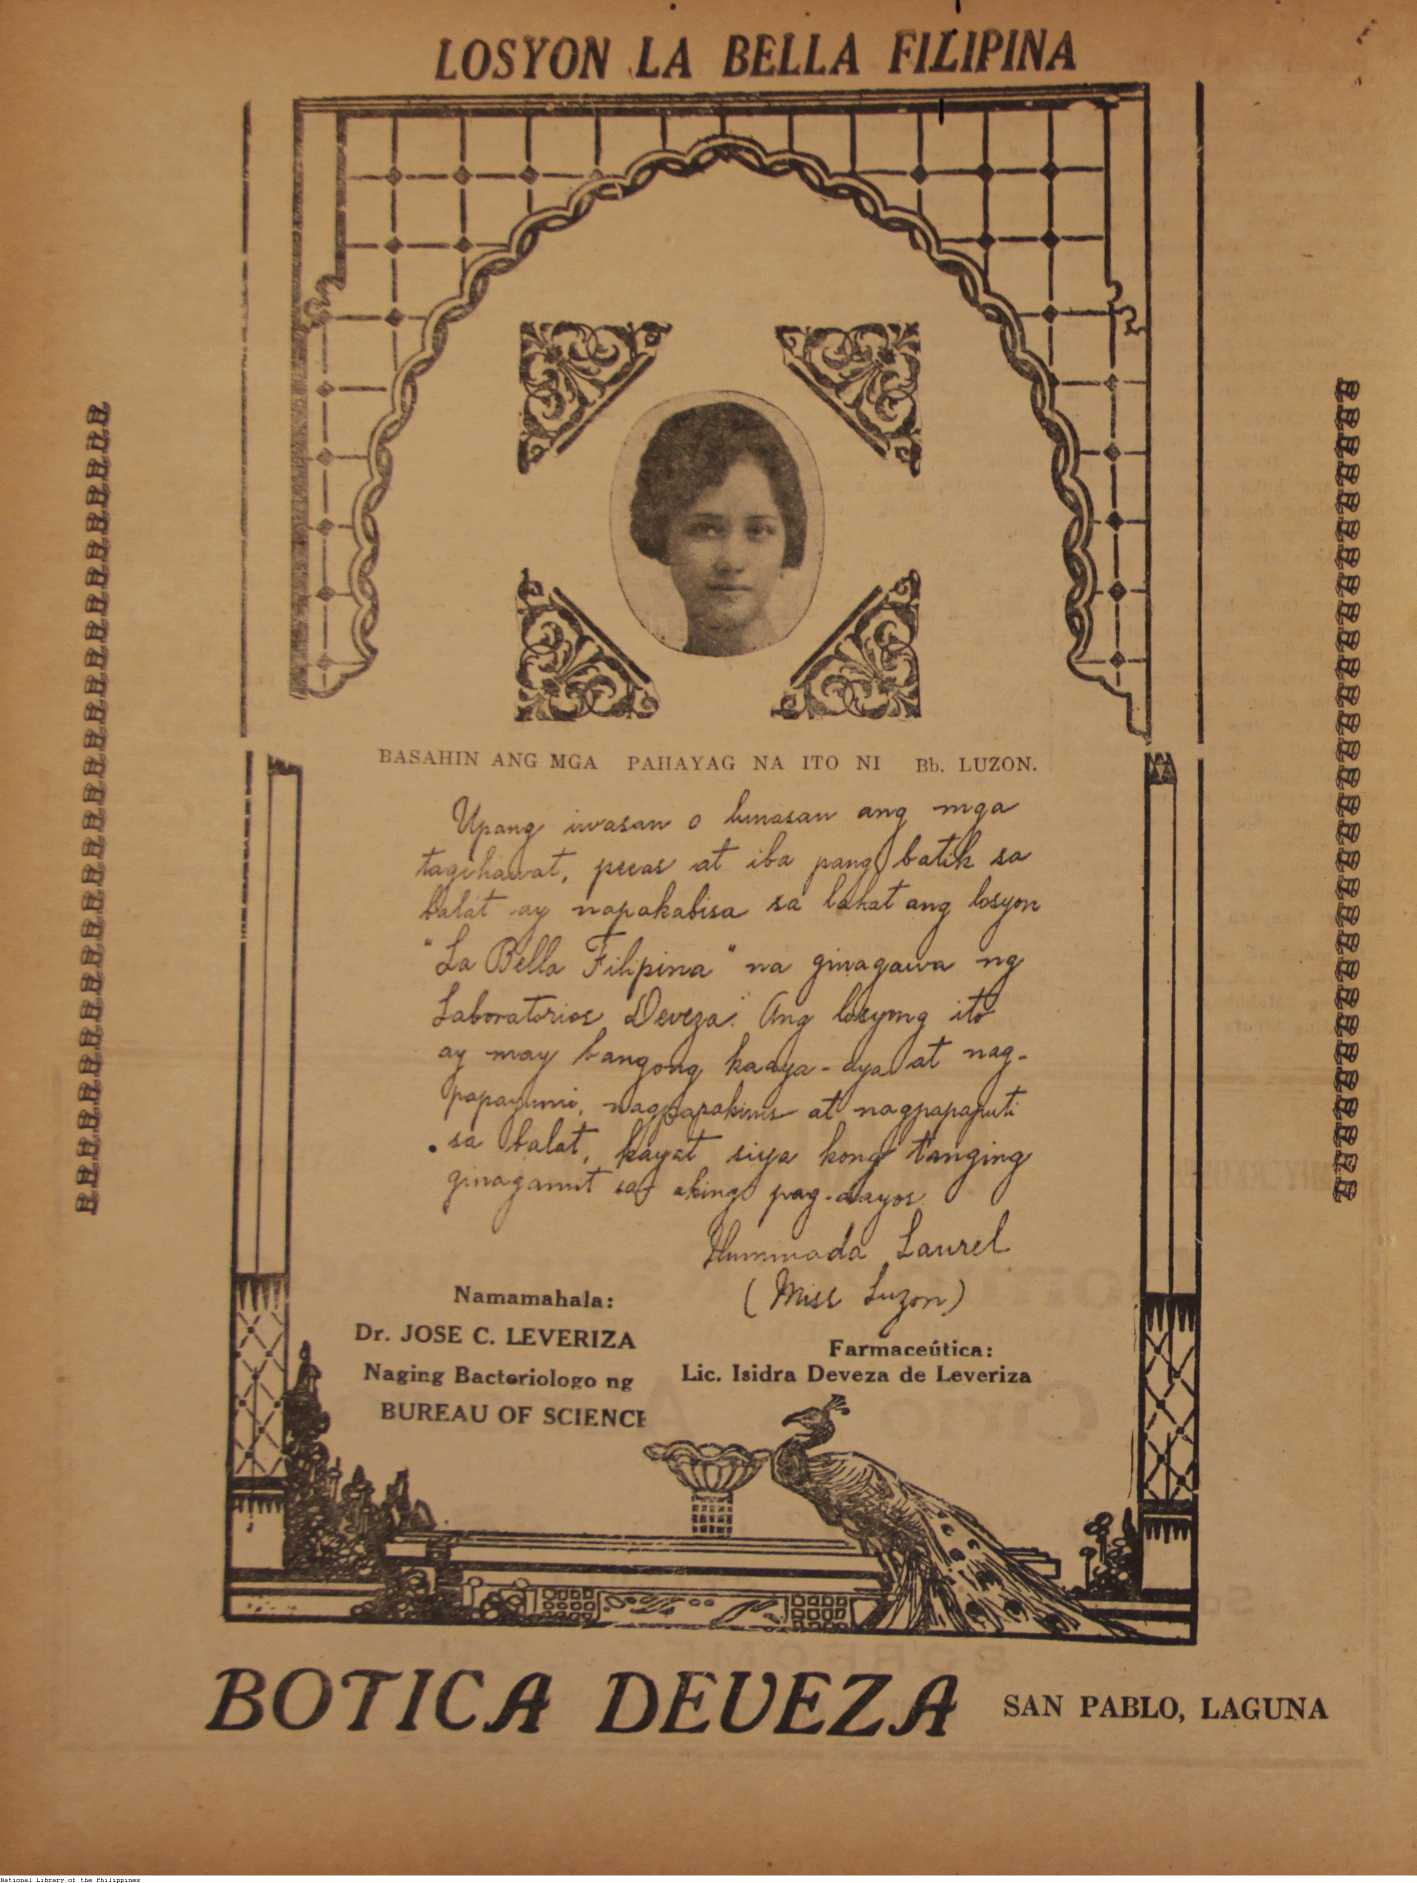 LOSYON LA BELLA FILIPINA
BASAHIN ANG MGA PAHAYAG NA ITO NI Bb. LUZON.
Upang iwasan o lunasan ang mga
tagihawat, pecas at iba pang batik sa
balat ay napakabisa sa lahat ang losyon
"La Bella Filipina" na ginagawa ng
Laboratorios Deveza. Ang losyong ito
ay may bangong kaaya-aya at nag-
papayumi, nagpapakinis at nagpapaputi
sa balat, kaya't siya kong tanging
ginagamit sa aking pag-aayos.
Iluminada Laurel
(Miss Luzon)
Namamahala:
Dr. JOSE C. LEVERIZA
Naging Bacteriologo ng
BUREAU OF SCIENCE
Farmaceútica:
Lic. Isidra Deveza de Leveriza
BOTICA DEVEZA SAN PABLO, LAGUNA
National Library of the Philippines